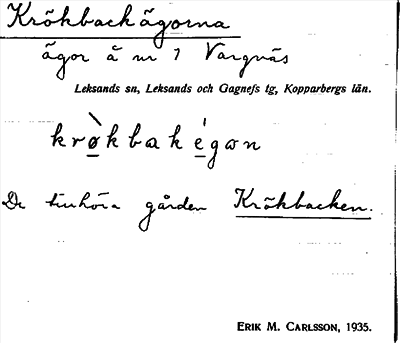 Krökbackägorna
ägor å nr 1 Vargnäs
Leksands sn, Leksands och Gagnefs tg, Kopparbergs län.
krø̀kbakégon
De tillhöra gården Krökbacken.
ERIK M. CARLSSON, 1935.